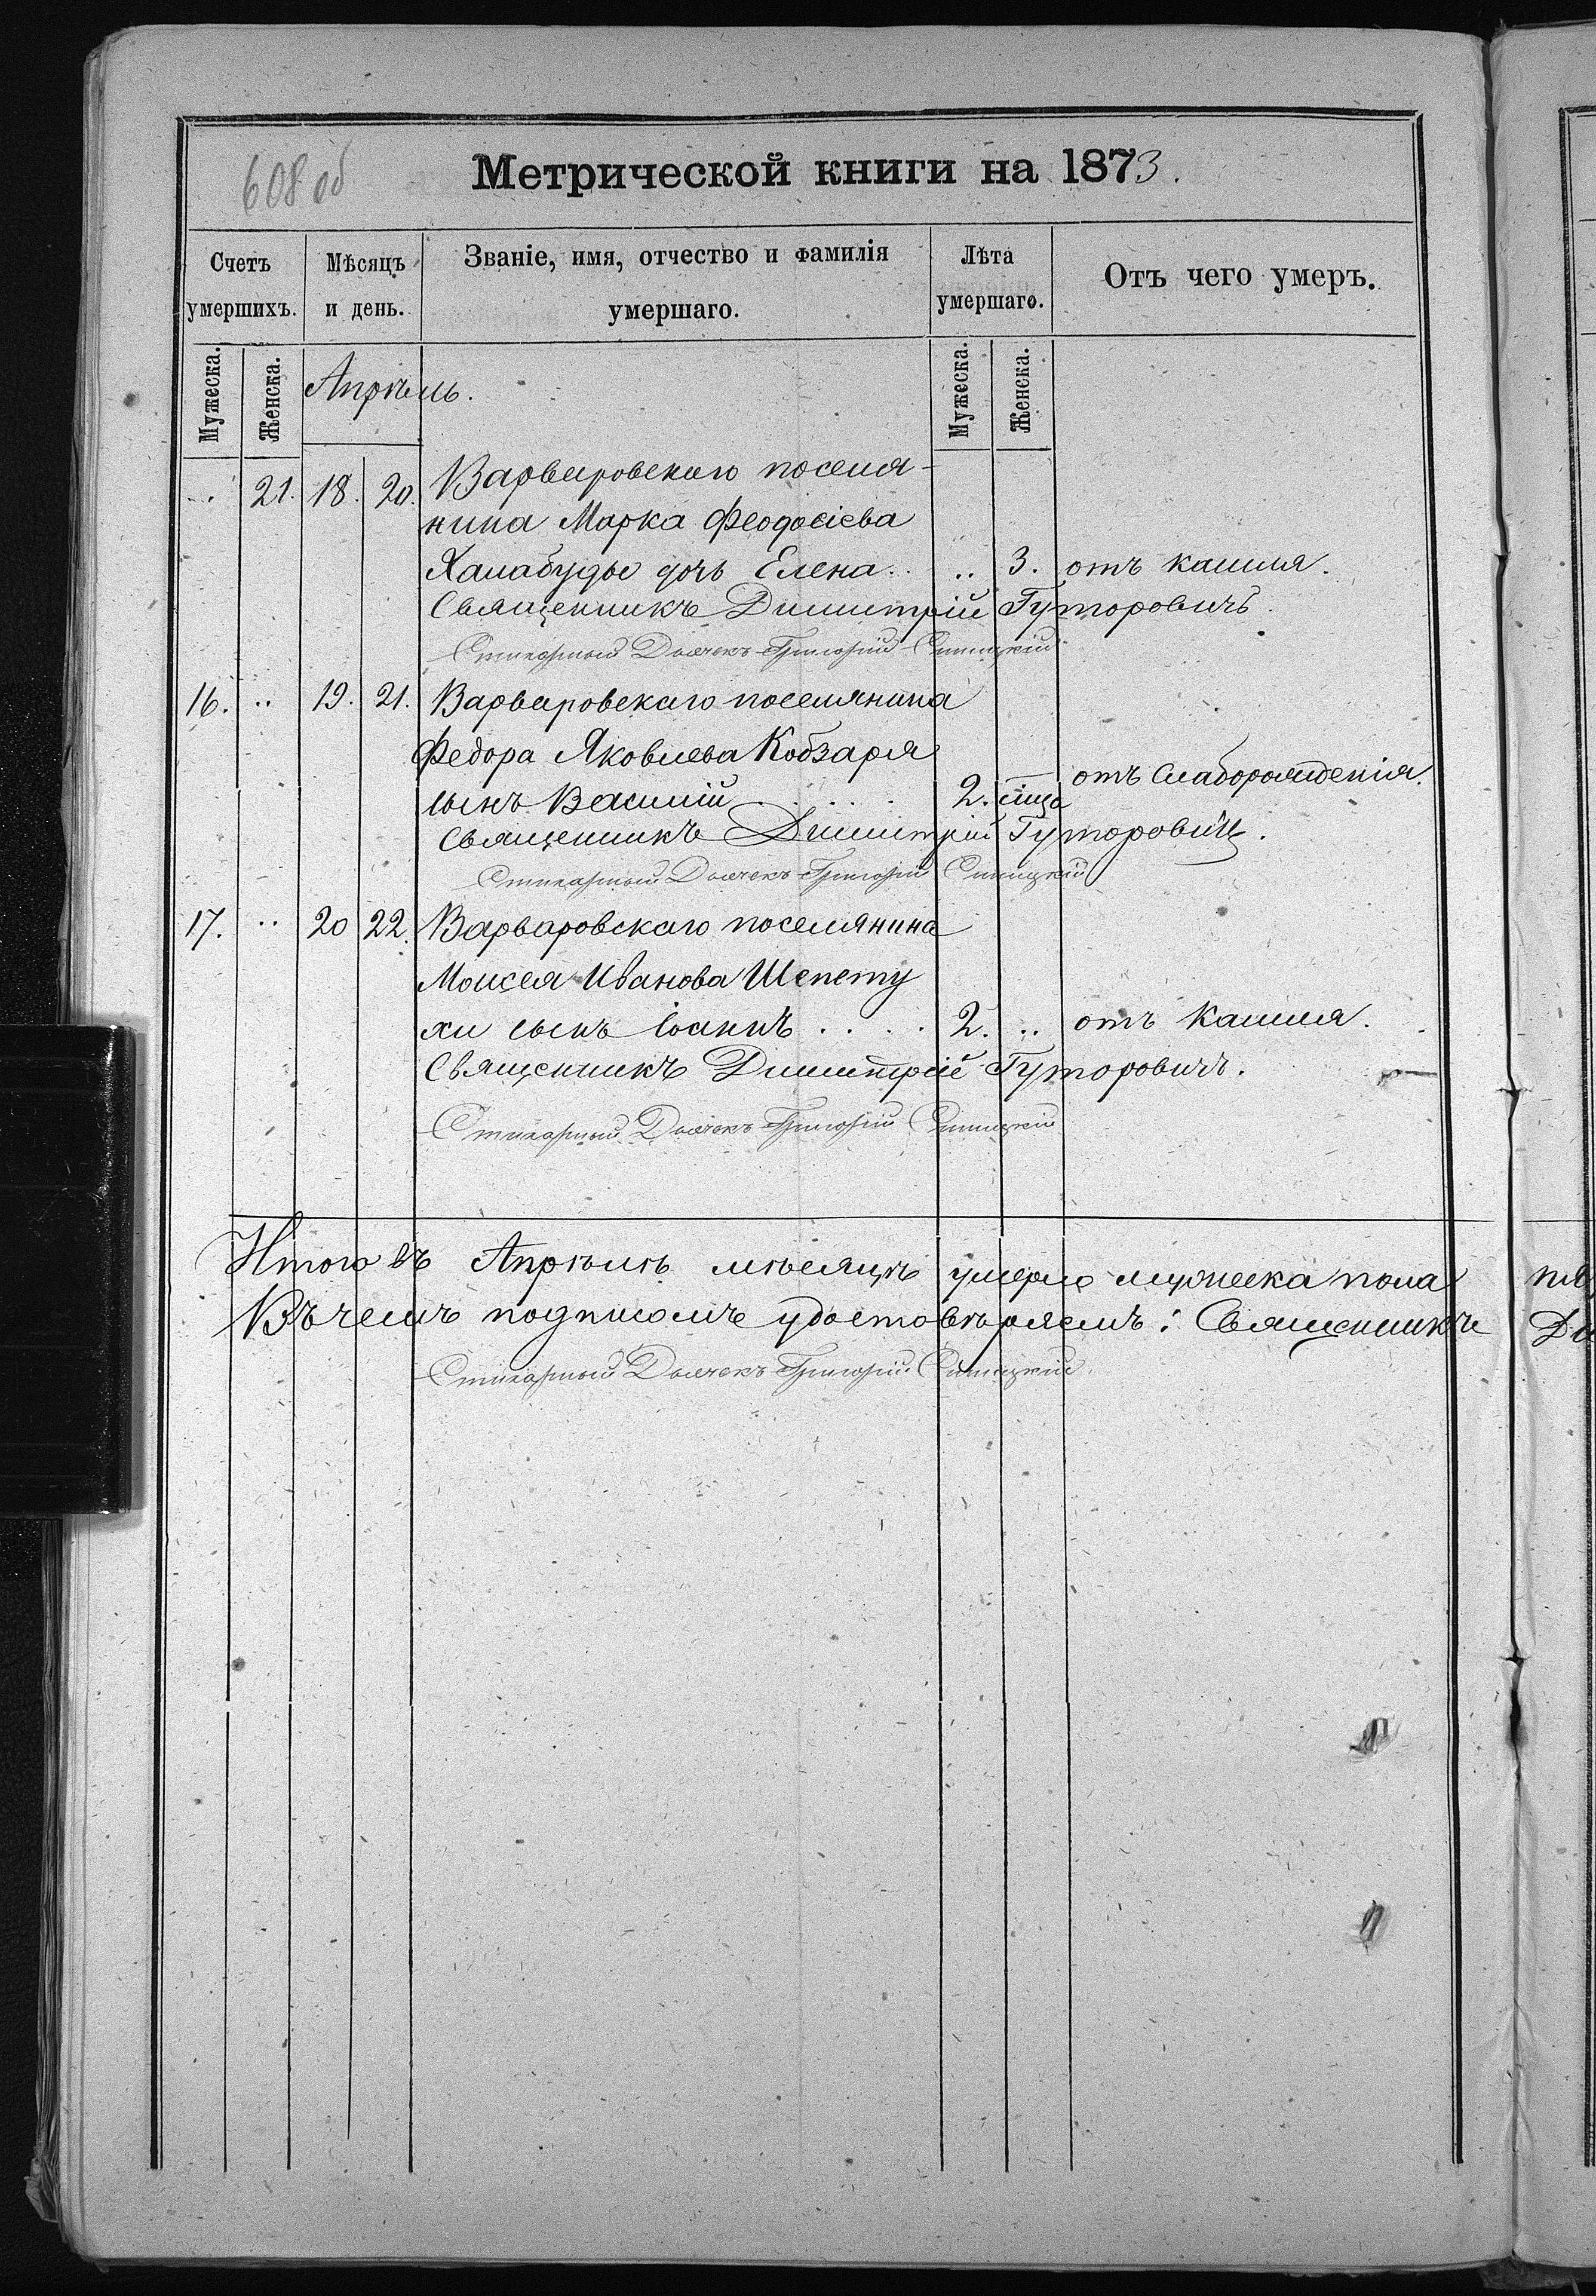 608 об
Метрической книги на 1873.
Счетъ умершихъ.
Мѣсяцъ и день.
Званіе, имя, отчество и фамилія умершаго.
Лѣта умершаго.
Отъ чего умеръ.
Мужеска. Женска.
Мужеска. Женска.
Апрѣль.
.. 21. 18. 20. Варваровскаго поселя-
нина Марка Феодосіева
дочь Елена .. 3. отъ кашля.
Священникъ Димитрій Гуторовичъ.
Стихарный Дьячекъ Григорій
16. .. 19. 21. Варваровскаго поселянина
Федора Яковлева Кобзаря
сынъ Василій 2. отъ слаборожденія.
Священникъ Димитрій Гуторовичъ.
Стихарный Дьячекъ Григорій
17. .. 20 22. Варваровскаго поселянина
Моисея Иванова Шепету
хи сынъ Іоаннъ . . . . 2. .. отъ кашля.
Священникъ Димитрій Гуторовичъ.
Стихарный Дьячекъ Григорій
Итого въ Апрѣлѣ мѣсяцѣ умерло мужеска пола
Въ чемъ подписомъ удостовѣряемъ: Священникъ
Стихарный Дьячекъ Григорій